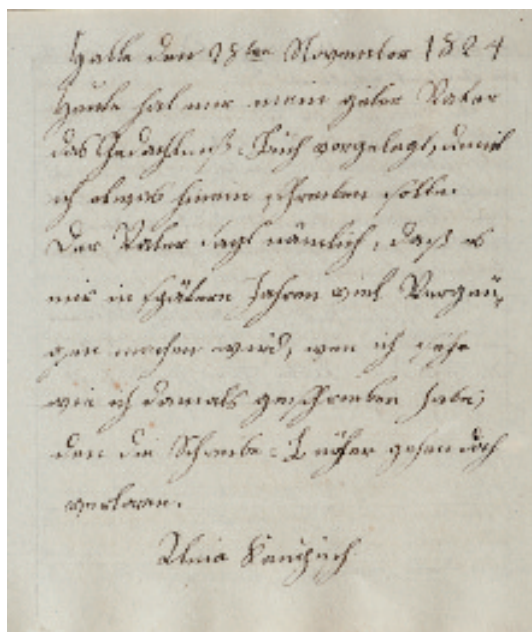 Halle den 28ten November 1824
Heute hat mir mein guter Vater
das Gedächtniß-Buch vorgelegt, damit
ich etwas hinein schreiben solle.
Der Vater sagt nämlich, daß es
mir in spätern Jahren viel Vergnü-
gen machen wird, wen ich sehe
wie ich damals geschrieben habe;
den die Schreibe-Bücher gehen doch
verloren.